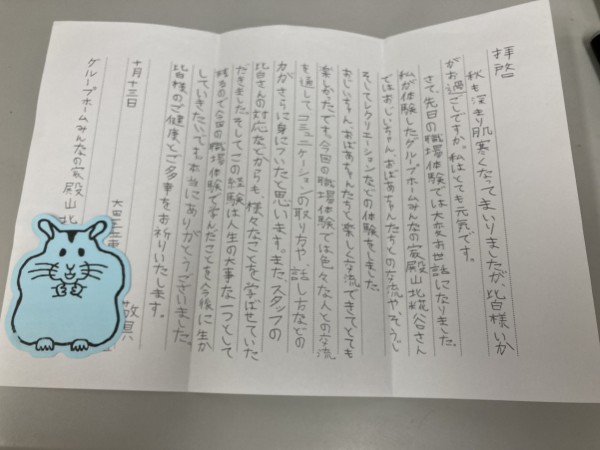 拝啓
秋も深まり肌寒くなってまいりましたが、皆様いか
がお過ごしですか。私はとても元気です。
さて、先日の職場体験では大変お世話になりました。
私が体験したグループホームみんなの家殿山北糀谷さん
ではおじいちゃん、おばあちゃんたちとの交流や、そうじ
そしてレクリエーションなどの体験をしました。
おじいちゃん、おばあちゃんたちと楽しく交流できてとても
楽しかったです。今回の職場体験では色々な人との交流
を通してコミュニケーションの取り方や、話し方などの
力がさらに身についたと思います。また、スタッフの
皆さんの対応などからも、様々なことを学ばせていた
だきました。そしてこの経験は人生の大事な一つとして
残るので今回の職場体験で学んだことを今後に生か
していきたいです。本当にありがとうございました。
皆様のご健康とご多幸をお祈りいたします。
敬具
十月十三日
グループホームみんなの家殿山北